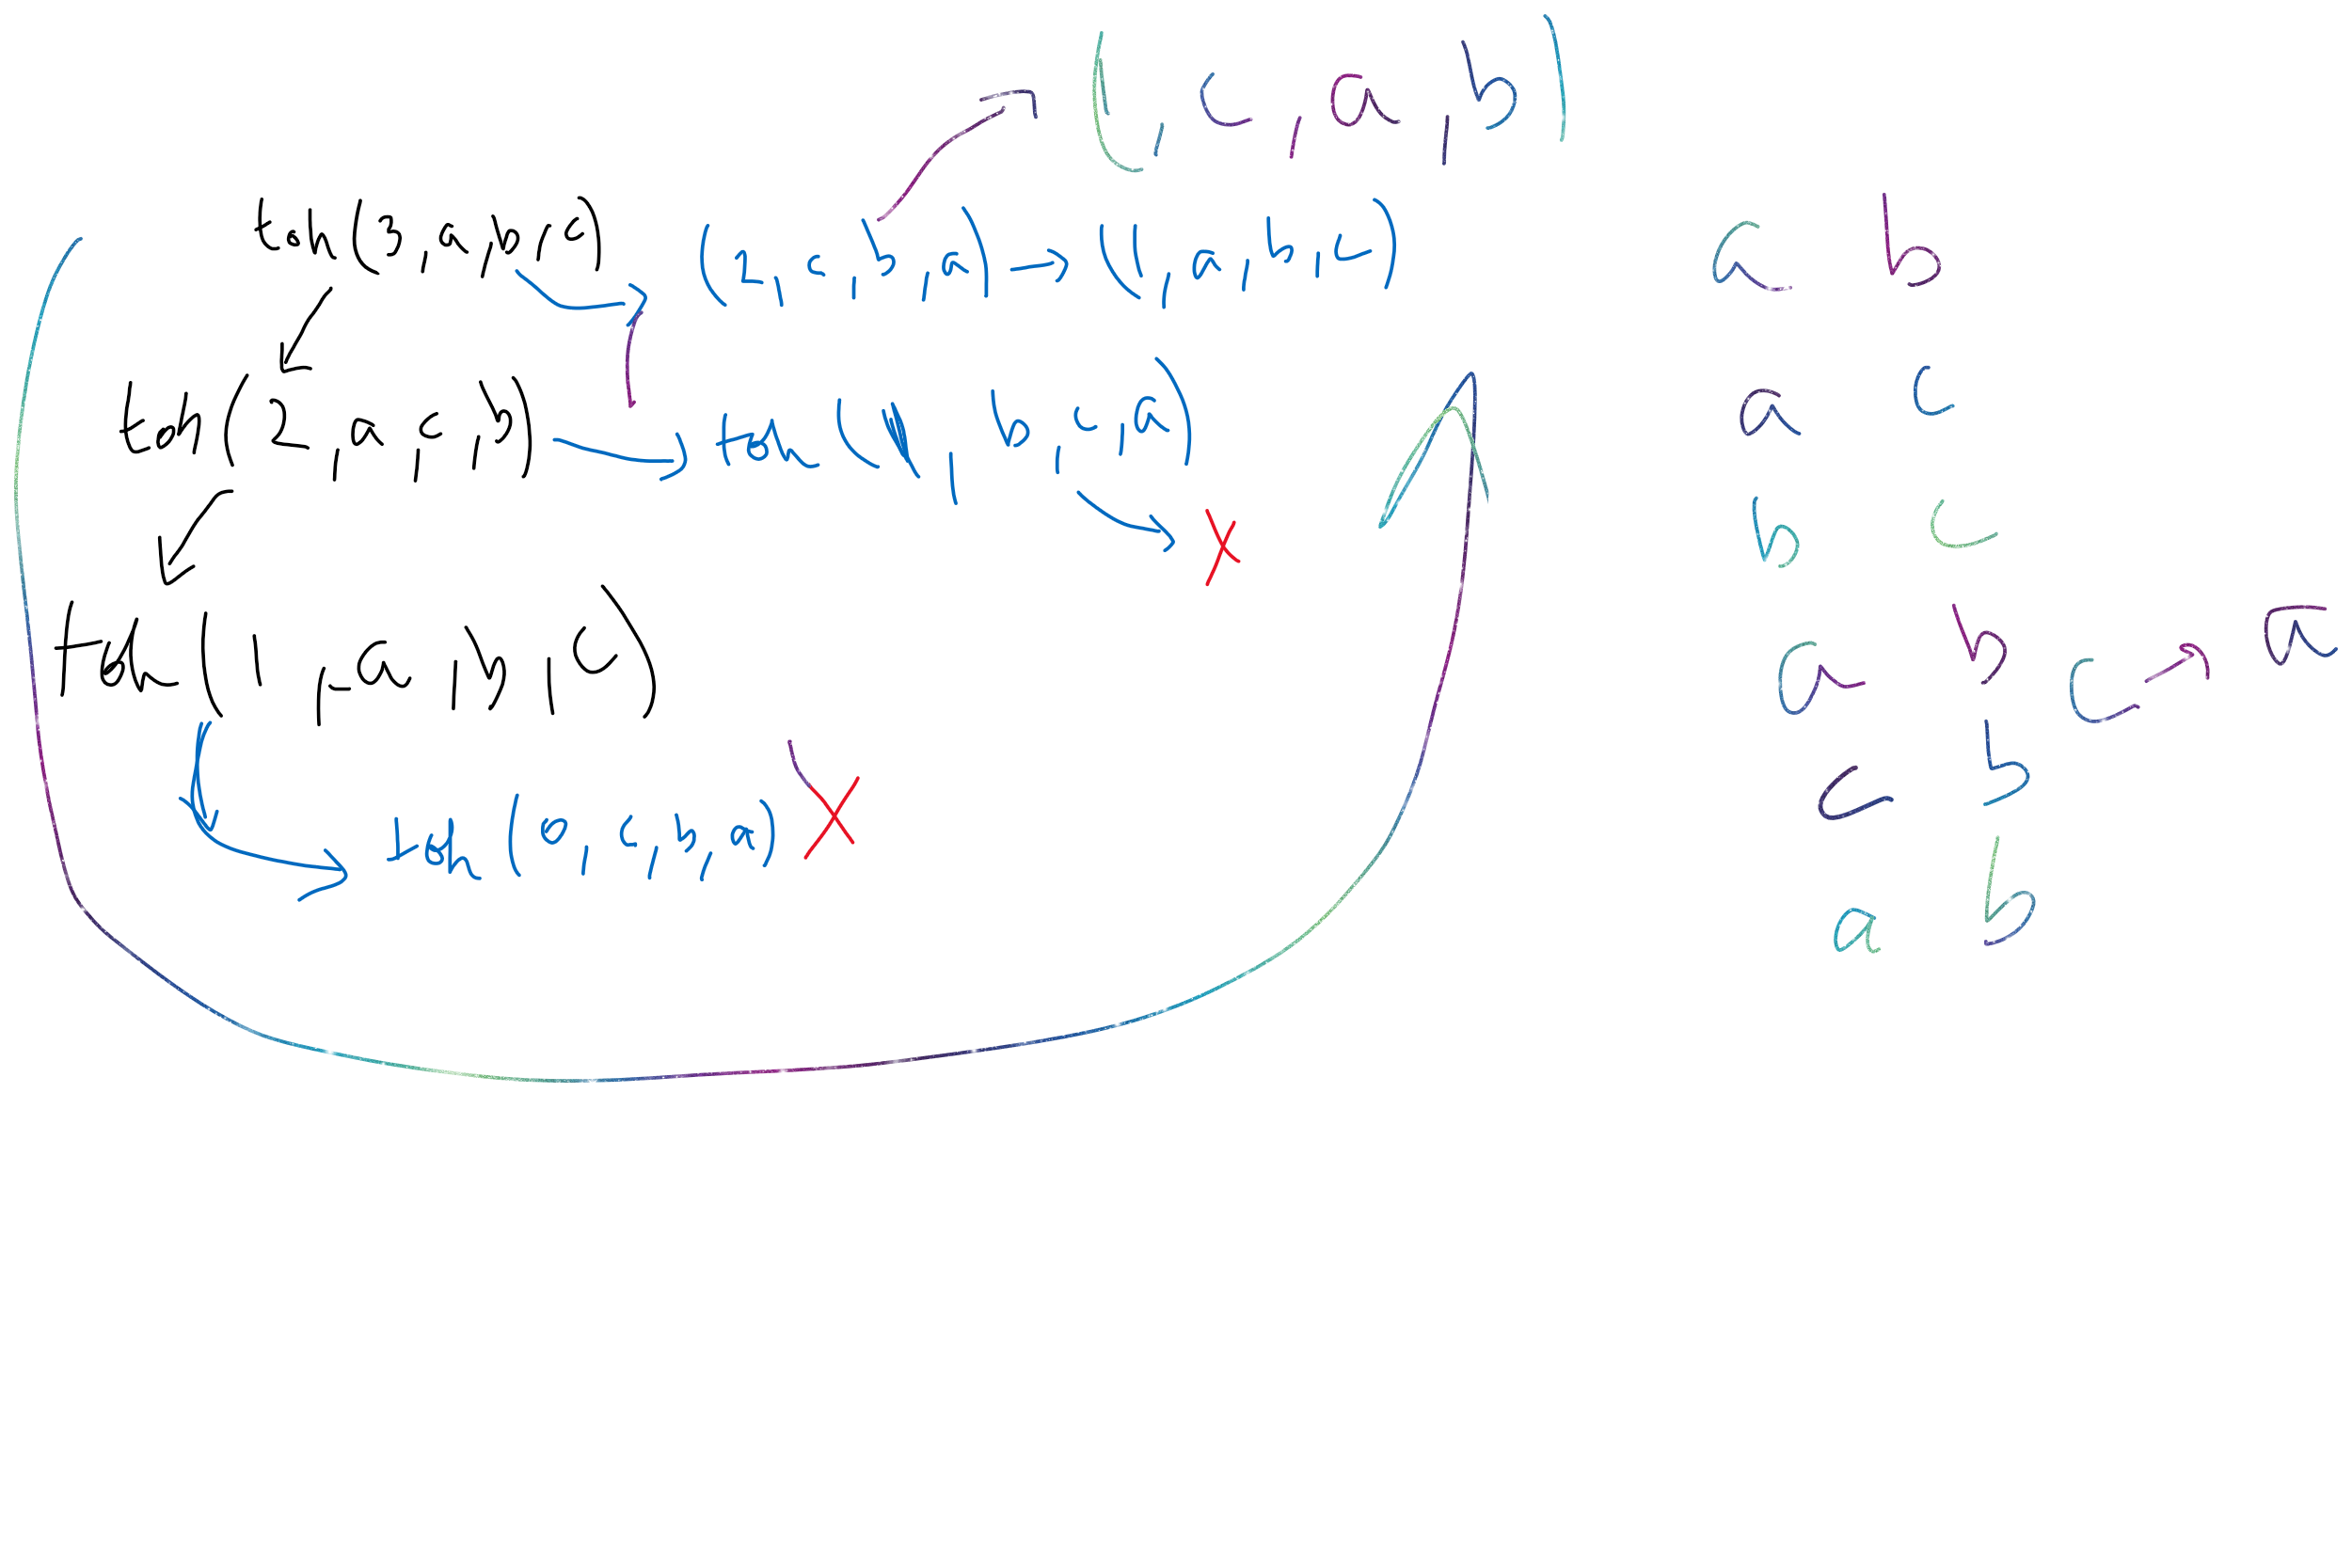 (1, c, a, b)
toh(3, a, b, c)
(2, c, b, a) → (1, a, b, c)
toh(2, a, c, b)
toh(1, b, c, a)
X
toh(1, a, b, c)
toh(0, c, b, a) X
a b
a c
b c
a b
c → a
c b
a b